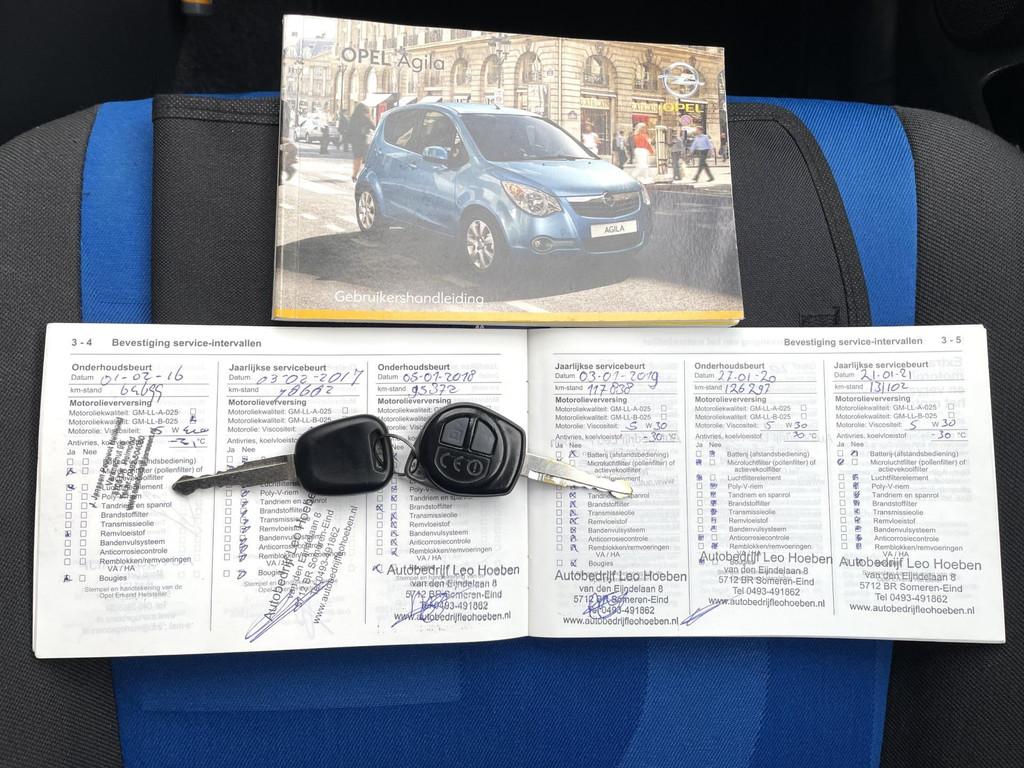 OPEL Agila
OPEL
AGILA
Gebruikershandleiding
3 - 4 Bevestiging service-intervallen
Onderhoudsbeurt
Datum 01-02-16
km-stand
Motorolieverversing
Motoroliekwaliteit: GM-LL-A-025
Motoroliekwaliteit: GM-LL-B-025
Motorolie: Viscositeit: 5 W
Antivries, koelvloeistof: °C
Ja Nee
VA / HA
Bougies
Stempel en handtekening van de
Opel Erkend Hersteller
Jaarlijkse servicebeurt
Datum 03-02-2017
km-stand 78662
Motorolieverversing
Motoroliekwaliteit: GM-LL-A-025
Motoroliekwaliteit: GM-LL-B-025
Motorolie: Viscositeit:
Antivries, koelvloeistof
Poly-V-riem
Tandriem en spanrol
Brandstoffilter
Transmissieolie
Remvloeistof
Bandenvulsysteem
Anticorrosiecontrole
Remblokken/remvoeringen
VA / HA
Bougies
Autobedrijf Leo Hoeben
van den Eijndelaan 8
5712 BR Someren-Eind
Tel 0493-491862
www.autobedrijfleohoeben.nl
Onderhoudsbeurt
Datum 05-01-2018
km-stand 95372
Motorolieverversing
Motoroliekwaliteit: GM-LL-A-025
Motoroliekwaliteit: GM-LL-B-025
Poly-V-riem
Tandriem en spanrol
Brandstoffilter
Transmissieolie
Remvloeistof
Bandenvulsysteem
Anticorrosiecontrole
Remblokken/remvoeringen
VA / HA
Bougies
Autobedrijf Leo Hoeben
van den Eijndelaan 8
5712 BR Someren-Eind
Tel 0493-491862
www.autobedrijfleohoeben.nl
Bevestiging service-intervallen 3 - 5
Jaarlijkse servicebeurt
Datum 03-01-2019
km-stand 117838
Motorolieverversing
Motoroliekwaliteit: GM-LL-A-025
Motoroliekwaliteit: GM-LL-B-025
Motorolie: Viscositeit: 5 W 30
Antivries, koelvloeistof -30 °C
Ja Nee
Batterij (afstandsbediening)
Microluchtfilter (pollenfilter) of
actievekoolfilter
Brandstoffilter
Transmissieolie
Remvloeistof
Bandenvulsysteem
Anticorrosiecontrole
Remblokken/remvoeringen
VA / HA
Bougies
Autobedrijf Leo Hoeben
van den Eijndelaan 8
5712 BR Someren-Eind
Tel 0493-491862
www.autobedrijfleohoeben.nl
Onderhoudsbeurt
Datum 27-01-20
km-stand 126297
Motorolieverversing
Motoroliekwaliteit: GM-LL-A-025
Motoroliekwaliteit: GM-LL-B-025
Motorolie: Viscositeit: 5 W 30
Antivries, koelvloeistof -30 °C
Ja Nee
Batterij (afstandsbediening)
Microluchtfilter (pollenfilter) of
actievekoolfilter
Luchtfilterelement
Poly-V-riem
Tandriem en spanrol
Brandstoffilter
Transmissieolie
Remvloeistof
Bandenvulsysteem
Anticorrosiecontrole
Remblokken/remvoeringen
Autobedrijf Leo Hoeben
van den Eijndelaan 8
5712 BR Someren-Eind
Tel 0493-491862
www.autobedrijfleohoeben.nl
Jaarlijkse servicebeurt
Datum 21-01-21
km-stand 131102
Motorolieverversing
Motoroliekwaliteit: GM-LL-A-025
Motoroliekwaliteit: GM-LL-B-025
Motorolie: Viscositeit: 5 W 30
Antivries, koelvloeistof -30 °C
Ja Nee
Batterij (afstandsbediening)
Microluchtfilter (pollenfilter) of
actievekoolfilter
Luchtfilterelement
Poly-V-riem
Tandriem en spanrol
Brandstoffilter
Transmissieolie
Remvloeistof
Bandenvulsysteem
Anticorrosiecontrole
Remblokken/remvoeringen
VA / HA
Autobedrijf Leo Hoeben
van den Eijndelaan 8
5712 BR Someren-Eind
Tel 0493-491862
www.autobedrijfleohoeben.nl